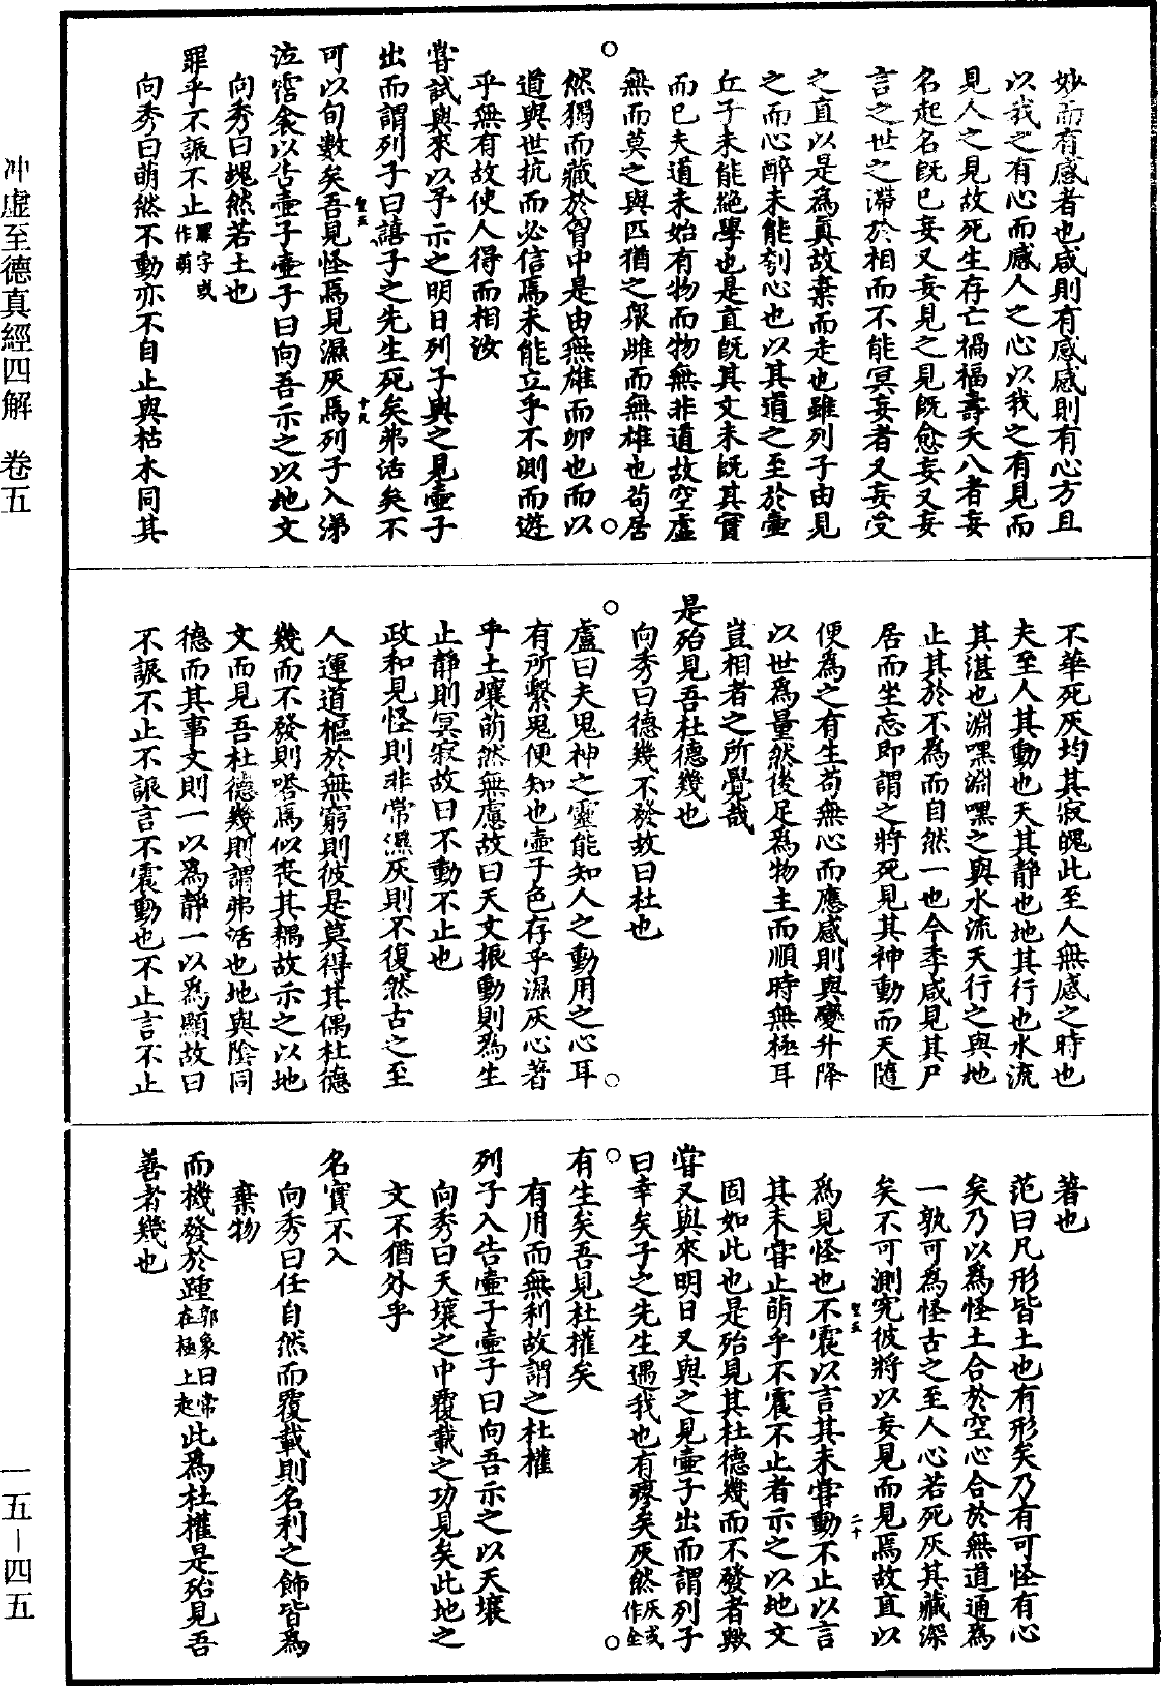 妙而有感者也咸則有感感則有心方且
以我之有心而感人之心以我之有見而
見人之見故死生存亡禍福壽夭八者妄
名起名既已妄又妄見之見既愈妄又妄
言之世之滯於相而不能冥妄者又妄受
之直以是為真故棄而走也雖列子由見
之而心醉未能刳心也以其道之至於壺
丘子未能絕學也是直既其文未既其實
而已夫道未始有物而物無非道故空虛
無而莫之與匹猶之眾雌而無雄也苟居
然獨而藏於胷中是由無雄而卵也而以
道與世抗而必信焉未能立乎不測而遊
乎無有故使人得而相汝
嘗試與來以予示之明日列子與之見壺子
出而謂列子曰譆子之先生死矣弗活矣不
可以旬數矣吾見怪焉見濕灰焉列子入涕
泣霑衾以告壺子壺子曰向吾示之以地文
向秀曰塊然若土也
罪乎不誫不止罪字或作萌
向秀曰萌然不動亦不自止與枯木同其
不華死灰均其寂魄此至人無感之時也
夫至人其動也天其靜也地其行也水流
其湛也淵嘿淵嘿之與水流天行之與地
止其於不為而自然一也今季咸見其尸
居而坐忘即謂之將死見其神動而天隨
便為之有生苟無心而應感則與變升降
以世為量然後足為物主而順時無極耳
豈相者之所覺哉
是殆見吾杜德幾也
向秀曰德幾不發故曰杜也
盧曰夫鬼神之靈能知人之動用之心耳
有所繫鬼便知也壺子色存乎濕灰心著
乎土壤萌然無慮故曰天文振動則為生
止靜則冥寂故曰不動不止也
政和見怪則非常濕灰則不復然古之至
人運道樞於無窮則彼是莫得其偶杜德
幾而不發則嗒焉似喪其耦故示之以地
文而見吾杜德幾則謂弗活也地與陰同
德而其事文則一以為靜一以為顯故曰
不誫不止不誫言不震動也不止言不止
著也
范曰凡形皆土也有形矣乃有可怪有心
矣乃以為怪土合於空心合於無道通為
一孰可為怪古之至人心若死灰其藏深
矣不可測究彼將以妄見而見焉故直以
為見怪也不震以言其未嘗動不止以言
其未嘗止萌乎不震不止者示之以地文
固如此也是殆見其杜德幾而不發者歟
嘗又與來明日又與之見壺子出而謂列子
曰幸矣子之先生遇我也有瘳矣灰然灰或作全
有生矣吾見杜權矣
有用而無利故謂之杜權
列子入告壺子壺子曰向吾示之以天壤
向秀曰天壤之中覆載之功見矣此地之
文不猶外乎
名實不入
向秀曰任自然而覆載則名利之飾皆為
棄物
而機發於踵郭象曰常在極上起此為杜權是殆見吾
善者幾也
冲虛至德真經四解 卷五
一五－四五